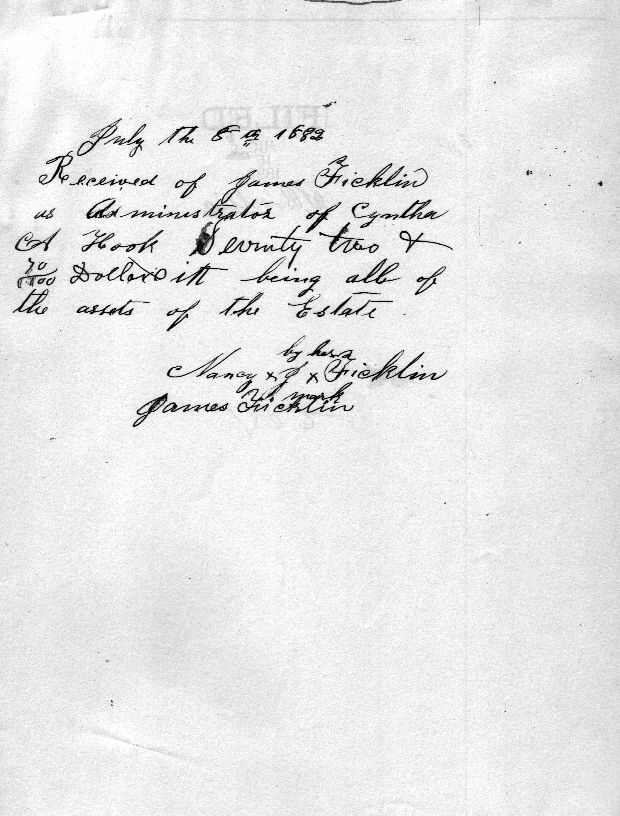 July the 8th 1882
Received of James Ficklin
as Administrator of Cyntha
A Hook Seventy two &
70/100 Dollars it being all of
the assets of the Estate.
by her
Nancy x J x Ficklin
mark
James Ficklin